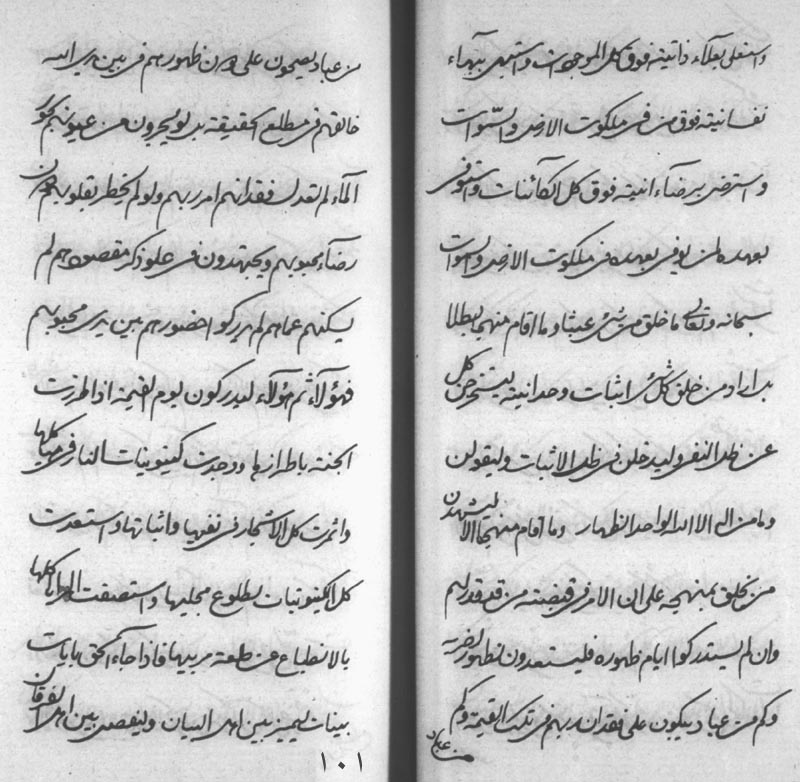 واستعلی بعلآء ذاتیته فوق کل الموجودات واستبهی ببهآء
نفسانیته فوق من فی ملکوت الارض والسموات
واسترضی برضآء انیته فوق کل الکآئنات واستوفی
بعهده لمن یوفی بعهده فی ملکوت الارض والسموات
سبحانه وتعالی ما خلق من شئ عبثا وما اقام منهجا بطلا
بل اراد من خلق کل شئ اثبات وحدانیته لیستخرجن کل
عن ظل النفی ولیدخلن فی ظل الاثبات ولیقولن
وما من اله الا الله الواحد الظهار وما اقام منهجا الا لیشهدن
من یخلق بمنهجه علی ان الامر فی قبضته من قد قدر لهم
وان لم یستدرکوا ایام ظهوره فلیستعدون لظهور اخریه
وکم من عباد یبکون علی فقدان ربهم فی تلک القیمة وکم
من عباد
من عباد یصیحون علی حزن ظهورهم فی بین یدی الله
خالقهم فی مطلع الحقیقة بل لو یجرون من عیونهم بحور
المآء لم تعدل فقدانهم امر ربهم ولو لم یخطر بقلوبهم حزن
رضآء محبوبهم ویجتهدون فی علو ذکر مقصودهم لم
یسکنهم عما هم لم یدرکوا حضورهم بین یدی محبوبهم
فهؤلآء ثم هؤلآء لیدرکون یوم القیمة اذا طرزت
الجنة باطرازها ووجدت کینونیات النار فی کلها
واثمرت کل الاشجار فی نفیها واثباتها واستعدت
کل الکینونیات لطلوع مجلیها واستصفت المرایا کلها
بالانطباع عن طلعة مربیها فاذا جآء الحق بایات
بینات لیمیز بین اهل البیان ولیفصل بین اهل الفرقان
١٠١